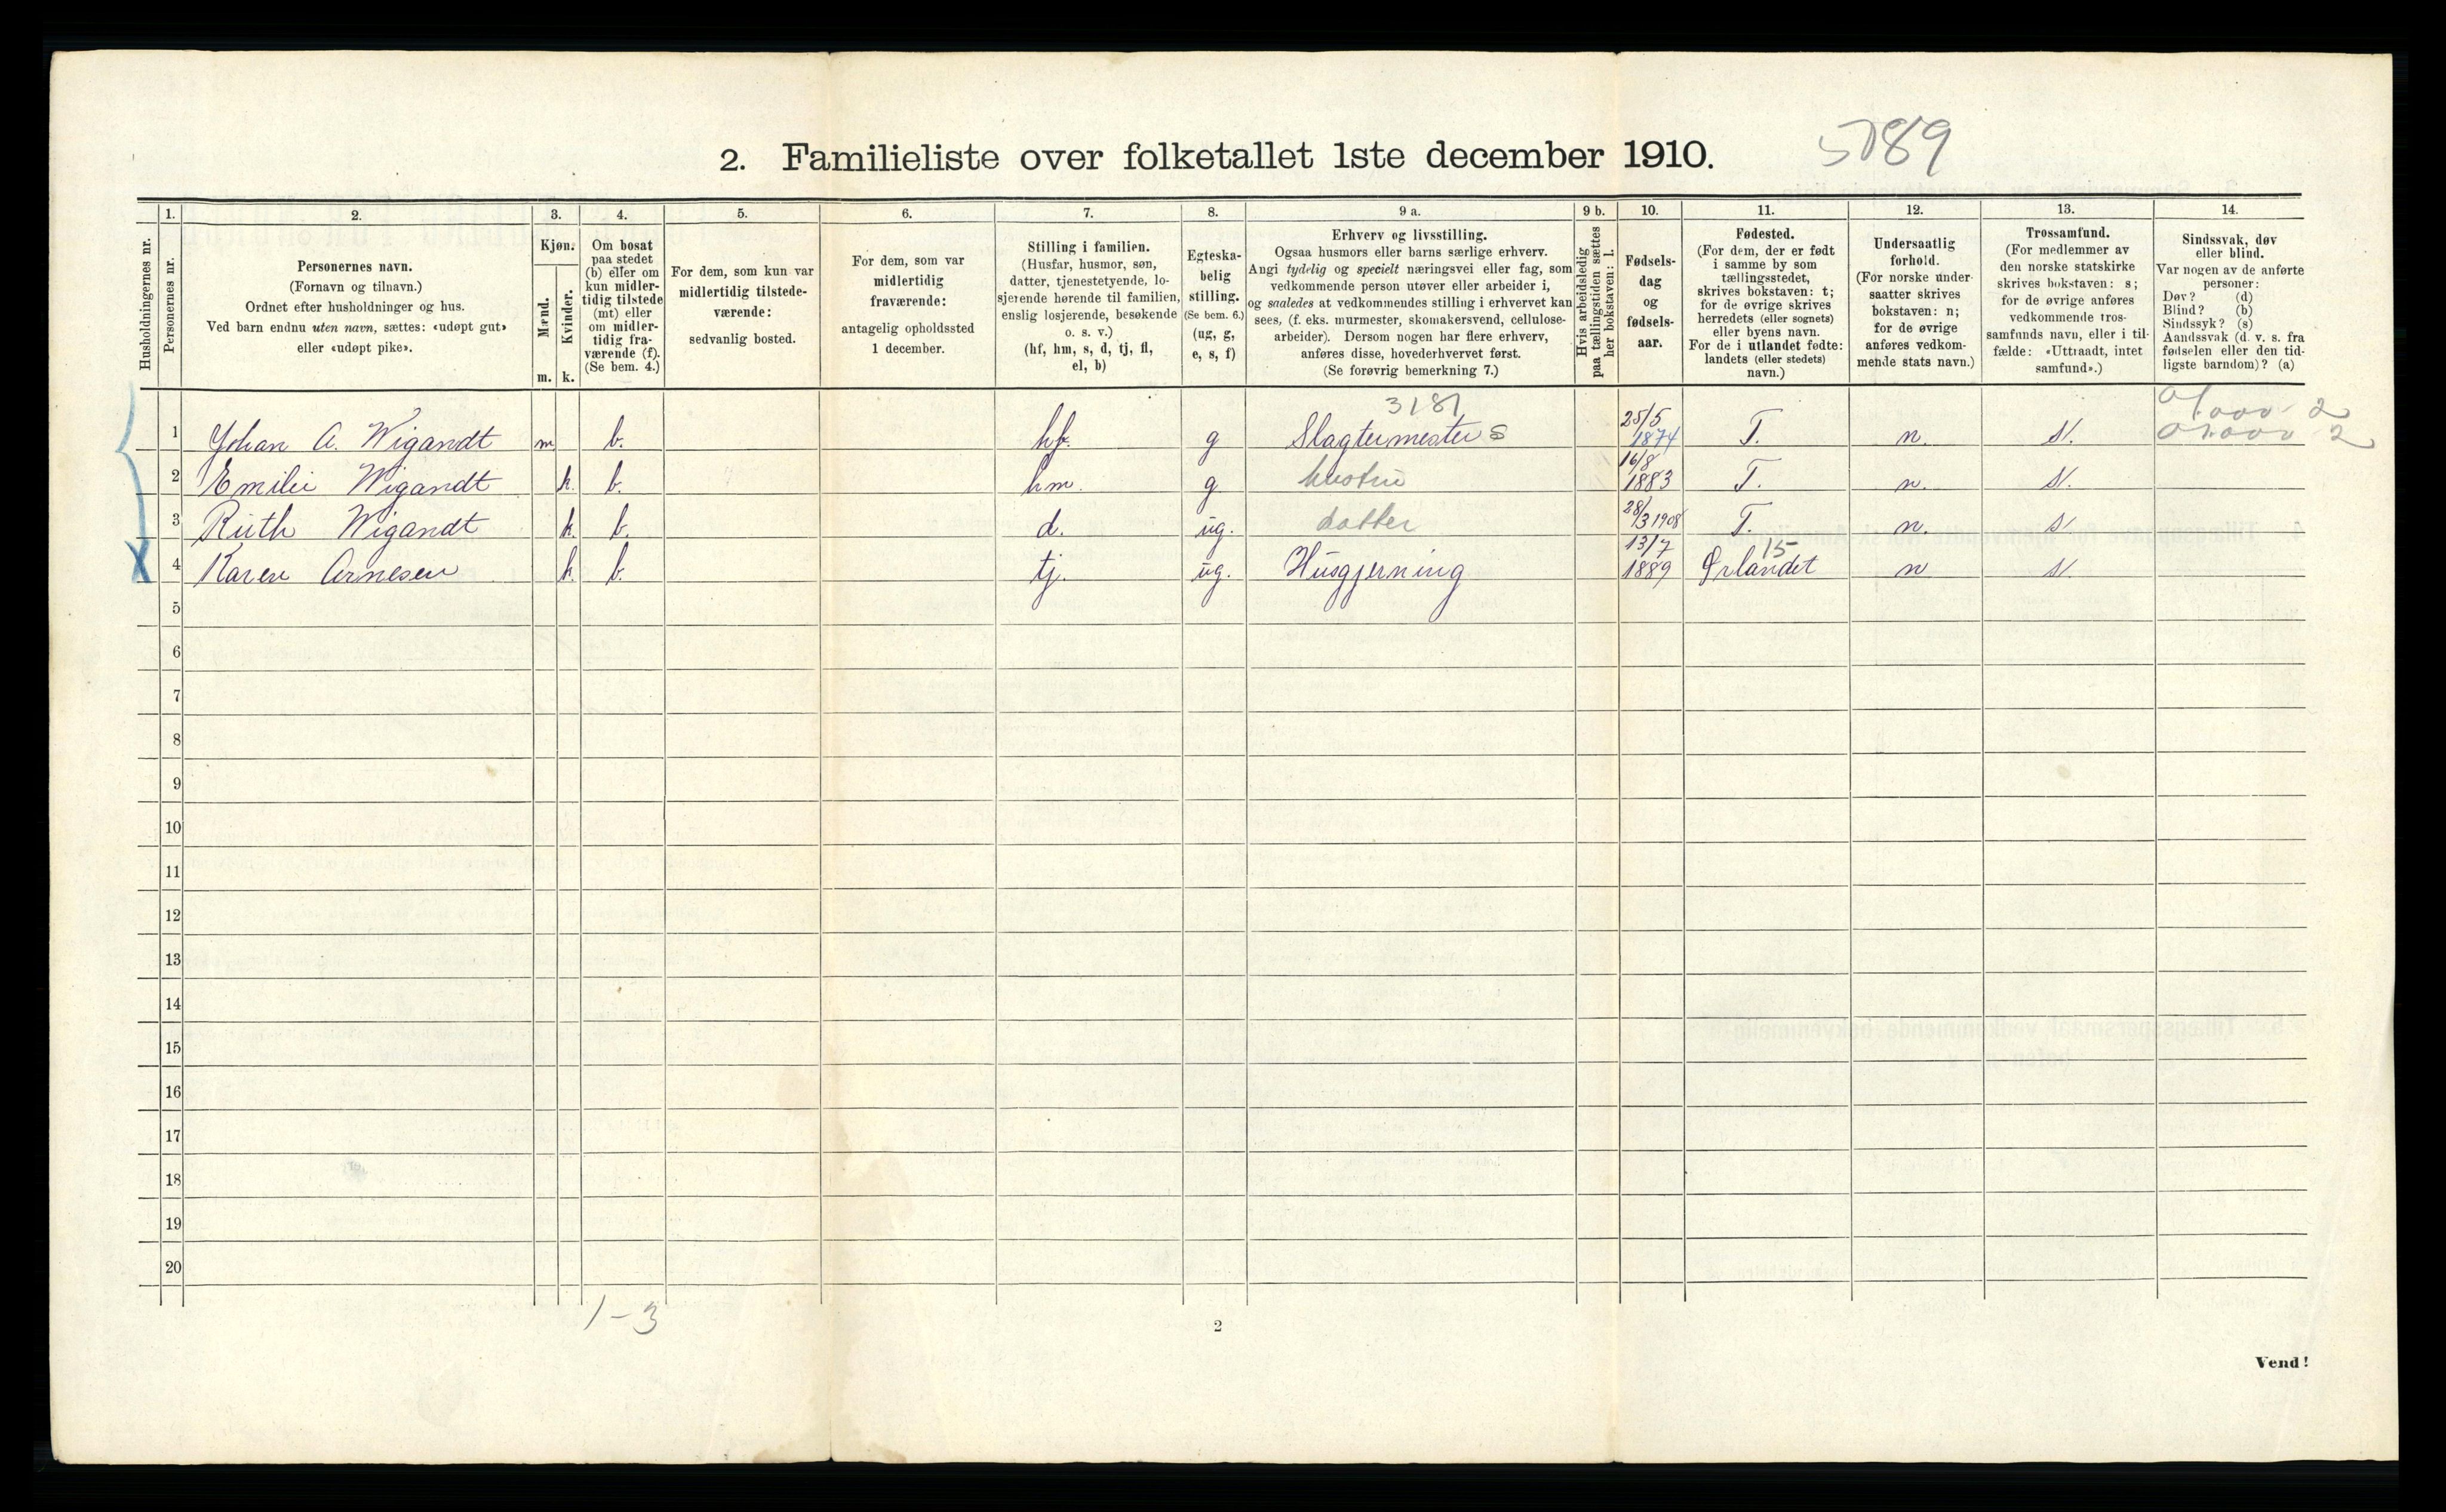 5789
2. Familieliste over folketallet 1ste december 1910.
1. 2. 3. 4. 5. 6. 7. 8. 9 a. 9 b. 10. 11. 12. 13. 14.
Husholdningernes nr.
Personernes nr.
Personernes navn.
(Fornavn og tilnavn.)
Ordnet efter husholdninger og hus.
Ved barn endnu uten navn, sættes: «udøpt gut»
eller «udøpt pike».
Kjøn.
Mænd.
Kvinder.
m. k.
Om bosat
paa stedet
(b) eller om
kun midler-
tidig tilstede
(mt) eller
om midler-
tidig fra-
værende (f).
(Se bem. 4.)
For dem, som kun var
midlertidig tilstede-
værende:
sedvanlig bosted.
For dem, som var
midlertidig
fraværende:
antagelig opholdssted
1 december.
Stilling i familien.
(Husfar, husmor, søn,
datter, tjenestetyende, lo-
sjerende hørende til familien,
enslig losjerende, besøkende
o. s. v.)
(hf, hm, s, d, tj, fl,
el, b)
Egteska-
belig
stilling.
(Se bem. 6.)
(ug, g,
e, s, f)
Erhverv og livsstilling.
Ogsaa husmors eller barns særlige erhverv.
Angi tydelig og specielt næringsvei eller fag, som
vedkommende person utøver eller arbeider i,
og saaledes at vedkommendes stilling i erhvervet kan
sees, (f. eks. murmester, skomakersvend, cellulose-
arbeider). Dersom nogen har flere erhverv,
anføres disse, hovederhvervet først.
(Se forøvrig bemerkning 7.)
Hvis arbeidsledig
paa tællingstiden sættes
her bokstaven: l.
Fødsels-
dag
og
fødsels-
aar.
Fødested.
(For dem, der er født
i samme by som
tællingsstedet,
skrives bokstaven: t;
for de øvrige skrives
herredets (eller sognets)
eller byens navn.
For de i utlandet fødte:
landets (eller stedets)
navn.)
Undersaatlig
forhold.
(For norske under-
saatter skrives
bokstaven: n;
for de øvrige
anføres vedkom-
mende stats navn.)
Trossamfund.
(For medlemmer av
den norske statskirke
skrives bokstaven: s;
for de øvrige anføres
vedkommende tros-
samfunds navn, eller i til-
fælde: «Uttraadt, intet
samfund».)
Sindssvak, døv
eller blind.
Var nogen av de anførte
personer:
Døv? (d)
Blind? (b)
Sindssyk? (s)
Aandssvak (d. v. s. fra
fødselen eller den tid-
ligste barndom)? (a)
3181
01.000-2
1 Johan A. Wigandt m b. hf. g Slagtermester S 25/5 1874 T. n. s. 01.000 2
2 Emilie Wigandt k. b. hm. g hustru 16/8 1883 T. n. s.
3 Ruth Wigandt k. b. d. ug. datter 28/3 1908 T. n. s.
15
4 Karen Arnesen k. b. tj. ug. Husgjerning 13/7 1889 Ørlandet n s.
5
6
7
8
9
10
11
12
13
14
15
16
17
18
19
20
1-3
2
Vend!